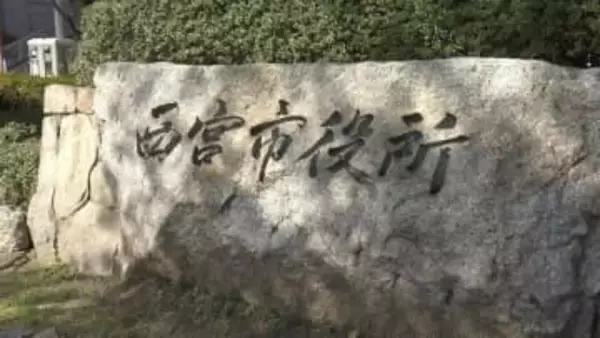 西宮市役所